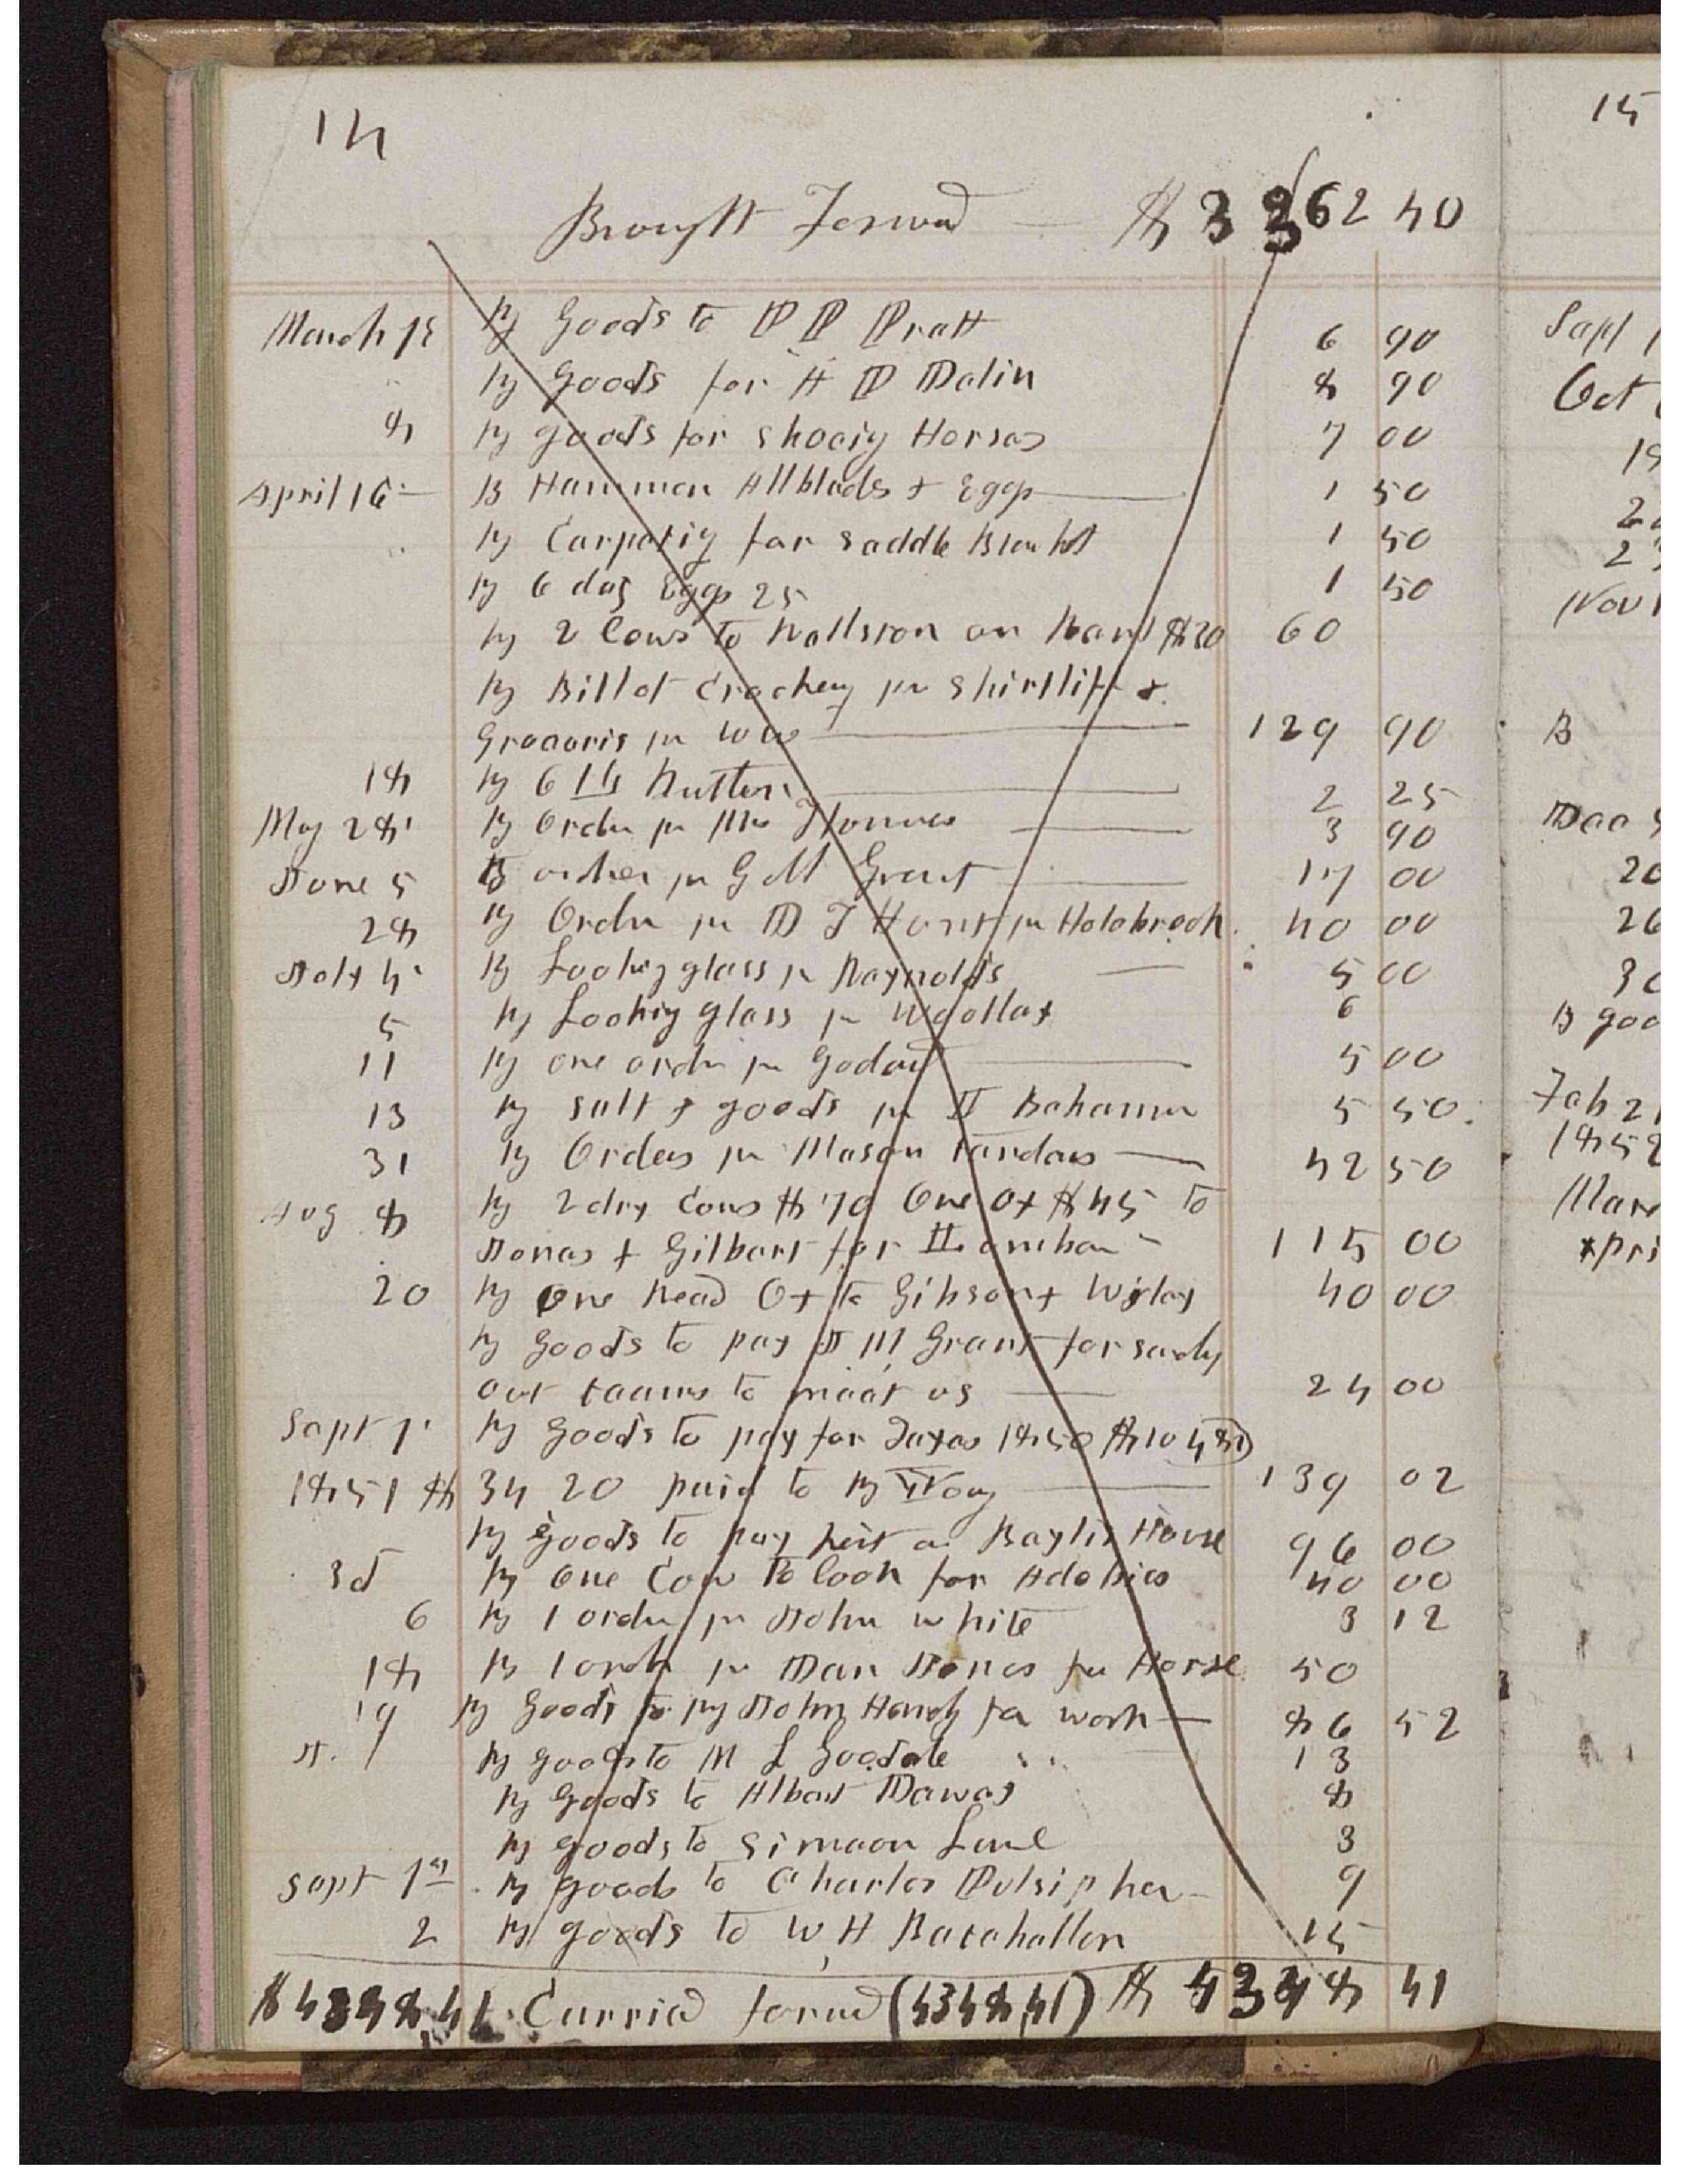 14
Brought Forwad $ 3362 40
March 15 By Goods to P P Pratt 6 90
" By Goods for A P Dolin 8 90
8 By goods for shoeig Horses 7 00
April 16 B Hammen Allblades + Eggs 1 50
" By Carpetig for saddle Blanket 1 50
By 6 doz Eggs 25 1 50
By 2 Cows to on $30 60
By Bill of Crockery pr Shirtliff +
Groceris pr 129 90
18 By 6 lb Butter 2 25
May 28 By Order pr Mrs 3 90
June 5 By order pr G M Grant 17 00
28 By Order pr D F Hunt pr Holebrook 40 00
July 4 By Lookigglass pr Raynolds 5 00
5 By Lookig glass pr Woolley 6
11 By one order pr Godard 5 00
13 By salt + goods pr J 5 50
31 By Orders pr Mason 42 50
Aug 8 By 2 dry Cows $70 One Ox $45 to
Jones + Gilbert for 115 00
20 By One head Ox to Gibson + Wiley 40 00
By Goods to pay J M Grant for
our teams to meet us 24 00
Sept 1 By Goods to pay for Taxes 1850 $104 82
1851 $ 34 20 paid to By 139 02
By goods to pay Rent on Baylis House 96 00
3d By One Cow to Cook for Adobies 40 00
6 By 1 order pr John White 3 12
18 By 1 order pr Dan Jones for Horse 50
19 By Goods to pay John Handy for work 86 52
By goods to M L Goodale " 13
By Goods to Albert Dewey 8
By goods to Simeon 3
Sept 1st By goods to Charles Pulsipher 9
2 By goods to W H Batchallor 15
$4348.41 Carried forwd (4348,41) $ 4348 41
15
Sept 1
Oct
19
2
2
Nov 1
B
Dec 5
20
26
30
B goo
Feb 21
1852
Marc
Apri